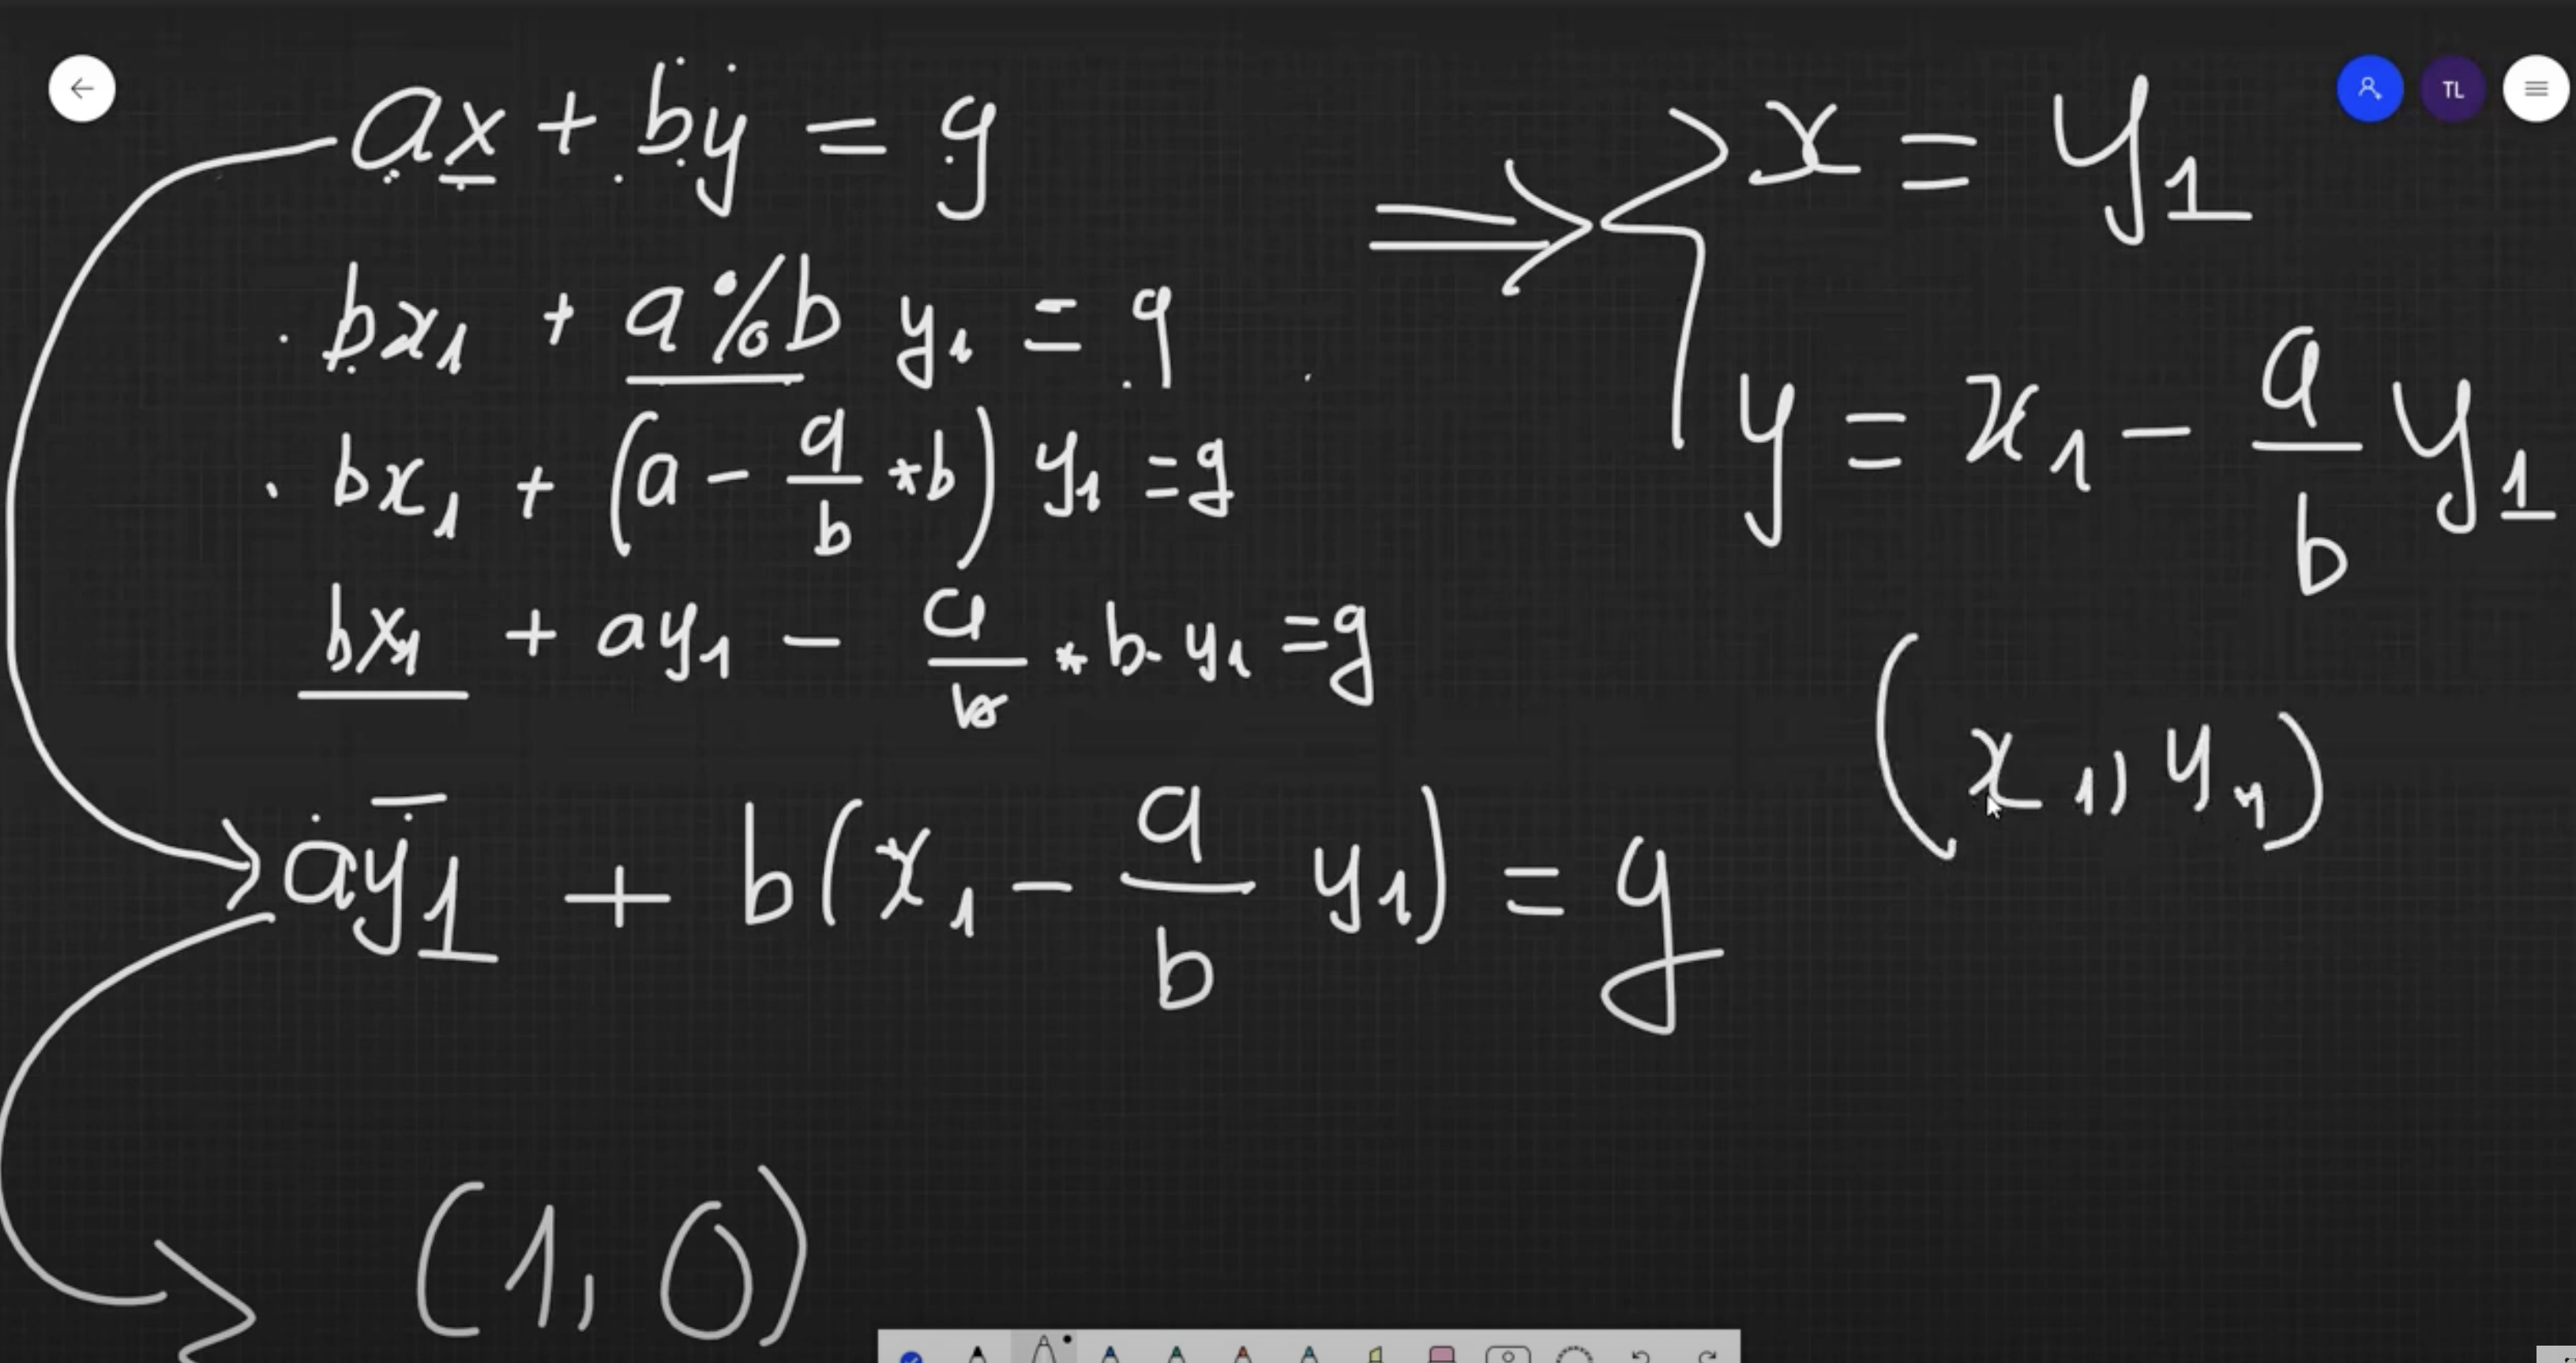 ax + by = g
bx₁ + a%b y₁ = g
bx₁ + (a - a/b *b) y₁ = g
bx₁ + ay₁ - a/b * b. y₁ = g
ay₁ + b(x₁ - a/b y₁) = g
(1, 0)
⇒ x = y₁
y = x₁ - a/b y₁
(x₁, y₁)
TL